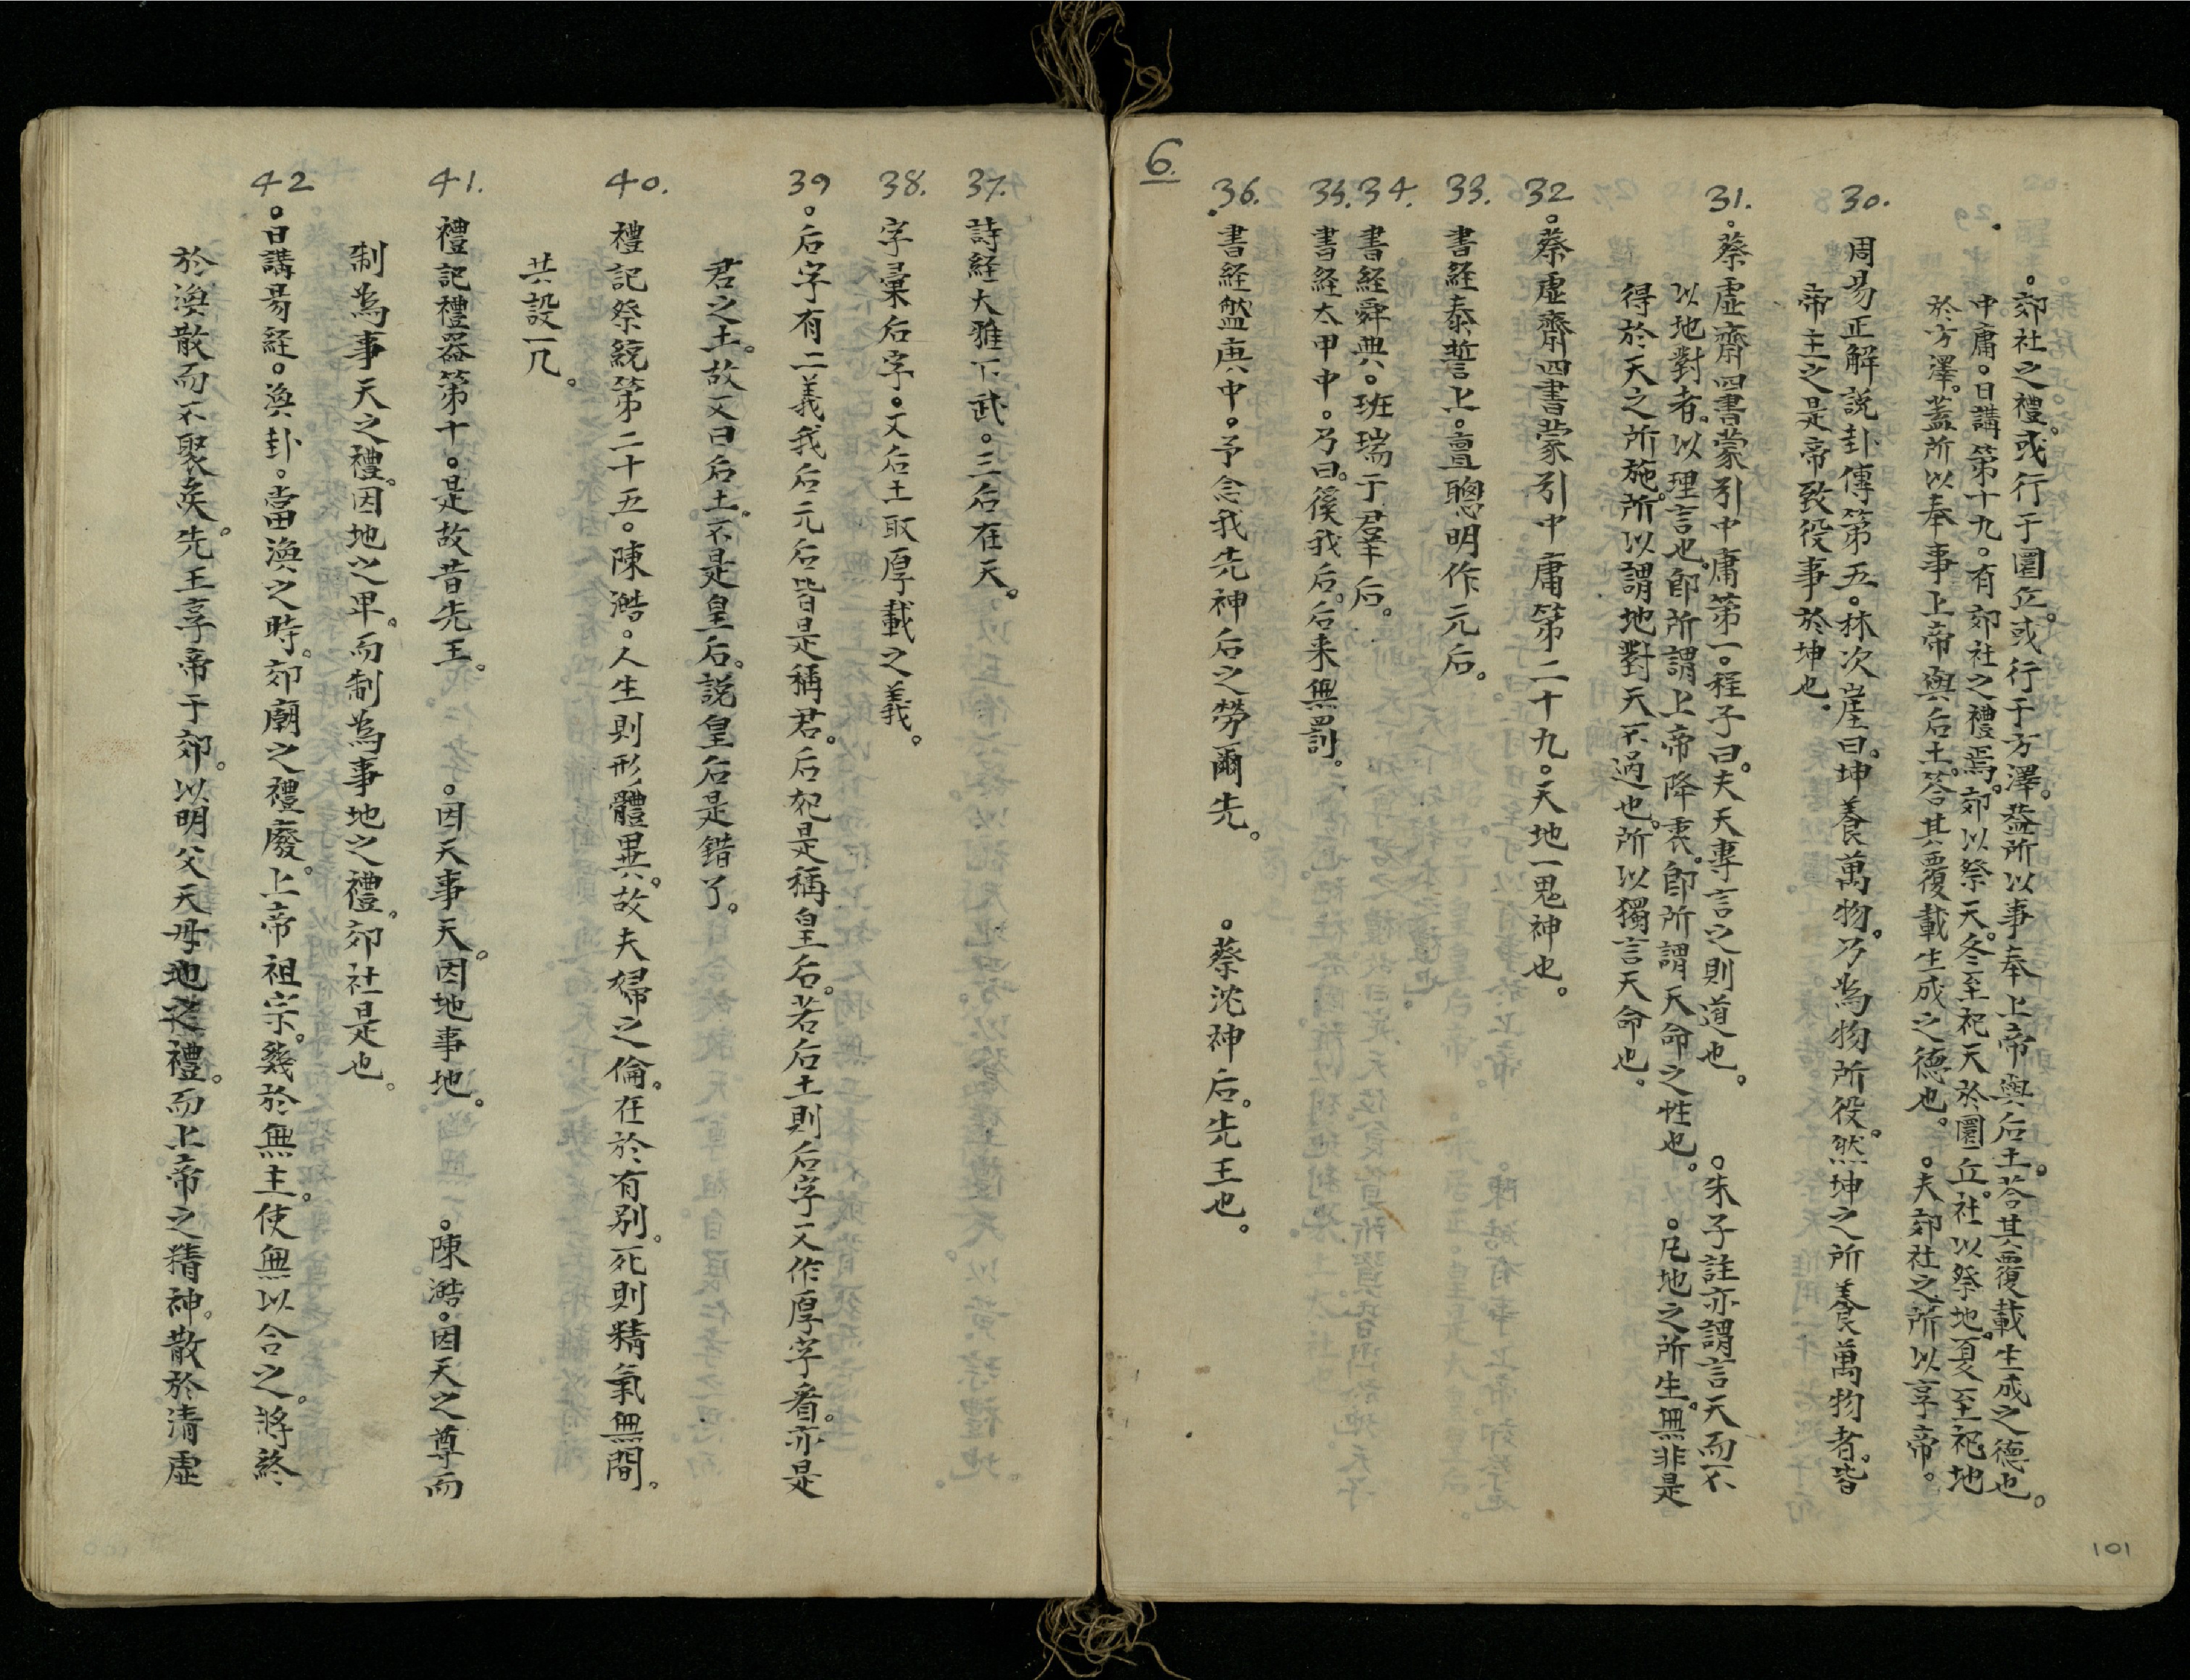 101
6.
。郊社之禮。或行于圜丘。或行于方澤。葢所以事奉上帝與后土。荅其覆載生成之德也。
中庸。日講第十九。有郊社之禮焉。郊以祭天。冬至祀天於圜丘。社以祭地。夏至祀地
於方澤。蓋所以奉事上帝與后土。荅其覆載生成之德也。 。夫郊社之所以享帝。
30. 周易正解說卦傳第五。林次崖曰。坤養萬物。乃為物所役。然坤之所養萬物者。皆
帝主之是帝致役事於坤也。
31. 。蔡虛齋四書蒙引中庸第一。程子曰。夫天專言之則道也。 。朱子註亦謂言天而不
以地對者。以理言也。卽所謂上帝降衷。卽所謂天命之性也。 。凡地之所生。無非是
得於天之所施。所以謂地對天不過也。所以獨言天命也。
32 。蔡虛齋四書蒙引中庸第二十九。天地一鬼神也。
33. 書経泰誓上。亶聰明作元后。
34. 書経舜典。班瑞于羣后。
35. 書経太甲中。乃曰。徯我后。后来無罰。
36. 書経盤庚中。予念我先神后之勞爾先。 。蔡沈神后。先王也。
37. 詩経大雅下武。三后在天。
38. 字彙后字。又后土取厚載之義。
39 。后字有二義我后元后皆是稱君。后妃是稱皇后。若后土則后字又作厚字看。亦是
君之土。故又曰后土。不是皇后。說皇后是錯了。
40. 禮記祭統第二十五。陳澔。人生則形體異。故夫婦之倫。在於有别。死則精氣無間。
共設一几。
41. 禮記禮器第十。是故昔先王。 。因天事天。因地事地。 。陳澔。因天之尊而
制為事天之禮。因地之卑。而制為事地之禮。郊社是也。
42 。日講易経。渙卦。當渙之時。郊廟之禮廢。上帝祖宗。幾於無主。使無以合之。將終
於渙散而不聚矣。先王享帝于郊。以明父天母地之禮。而上帝之精神。散於清虛